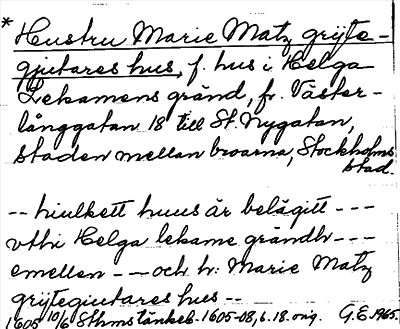 * Hustru Marie Matz grÿte-
gjutares hus, f. hus i Helga
Lekamens gränd, fr. Väster-
långgatan 18 till St. Nygatan,
staden mellan broarna, Stockholms
stad.
-- huilkett huus är belägitt ---
vthi Helga lekame grändh ---
emellen -- och hr: Marie Matz
grÿtegiutares hus --
1605 10/6 Sthms tänkeb. 1605-08, s. 18. orig. G.E. 1965.